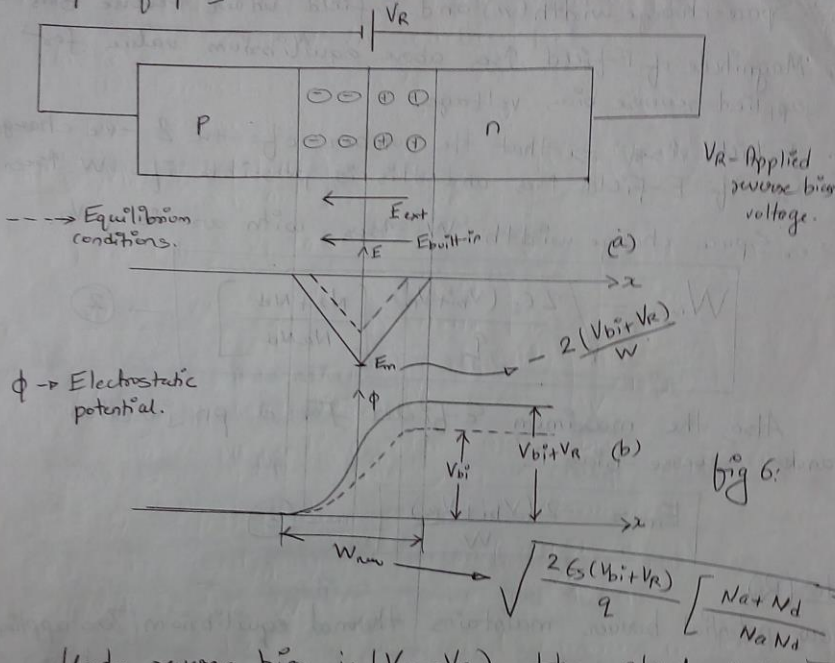 VR
P
n
⊖ ⊖ ⊕ ⊕
⊖ ⊖ ⊕ ⊕
VR - Applied
reverse bias
voltage.
Eext
---→ Equilibrium
conditions.
Ebuilt-in
(a)
E
x
Em
- 2(Vbi+VR)/W
ϕ → Electrostatic
potential.
ϕ
Vbi
Vbi+VR
(b)
fig 6:
x
Wnew
√ 2 εs (Vbi+VR)/q [ Na + Nd / Na Nd